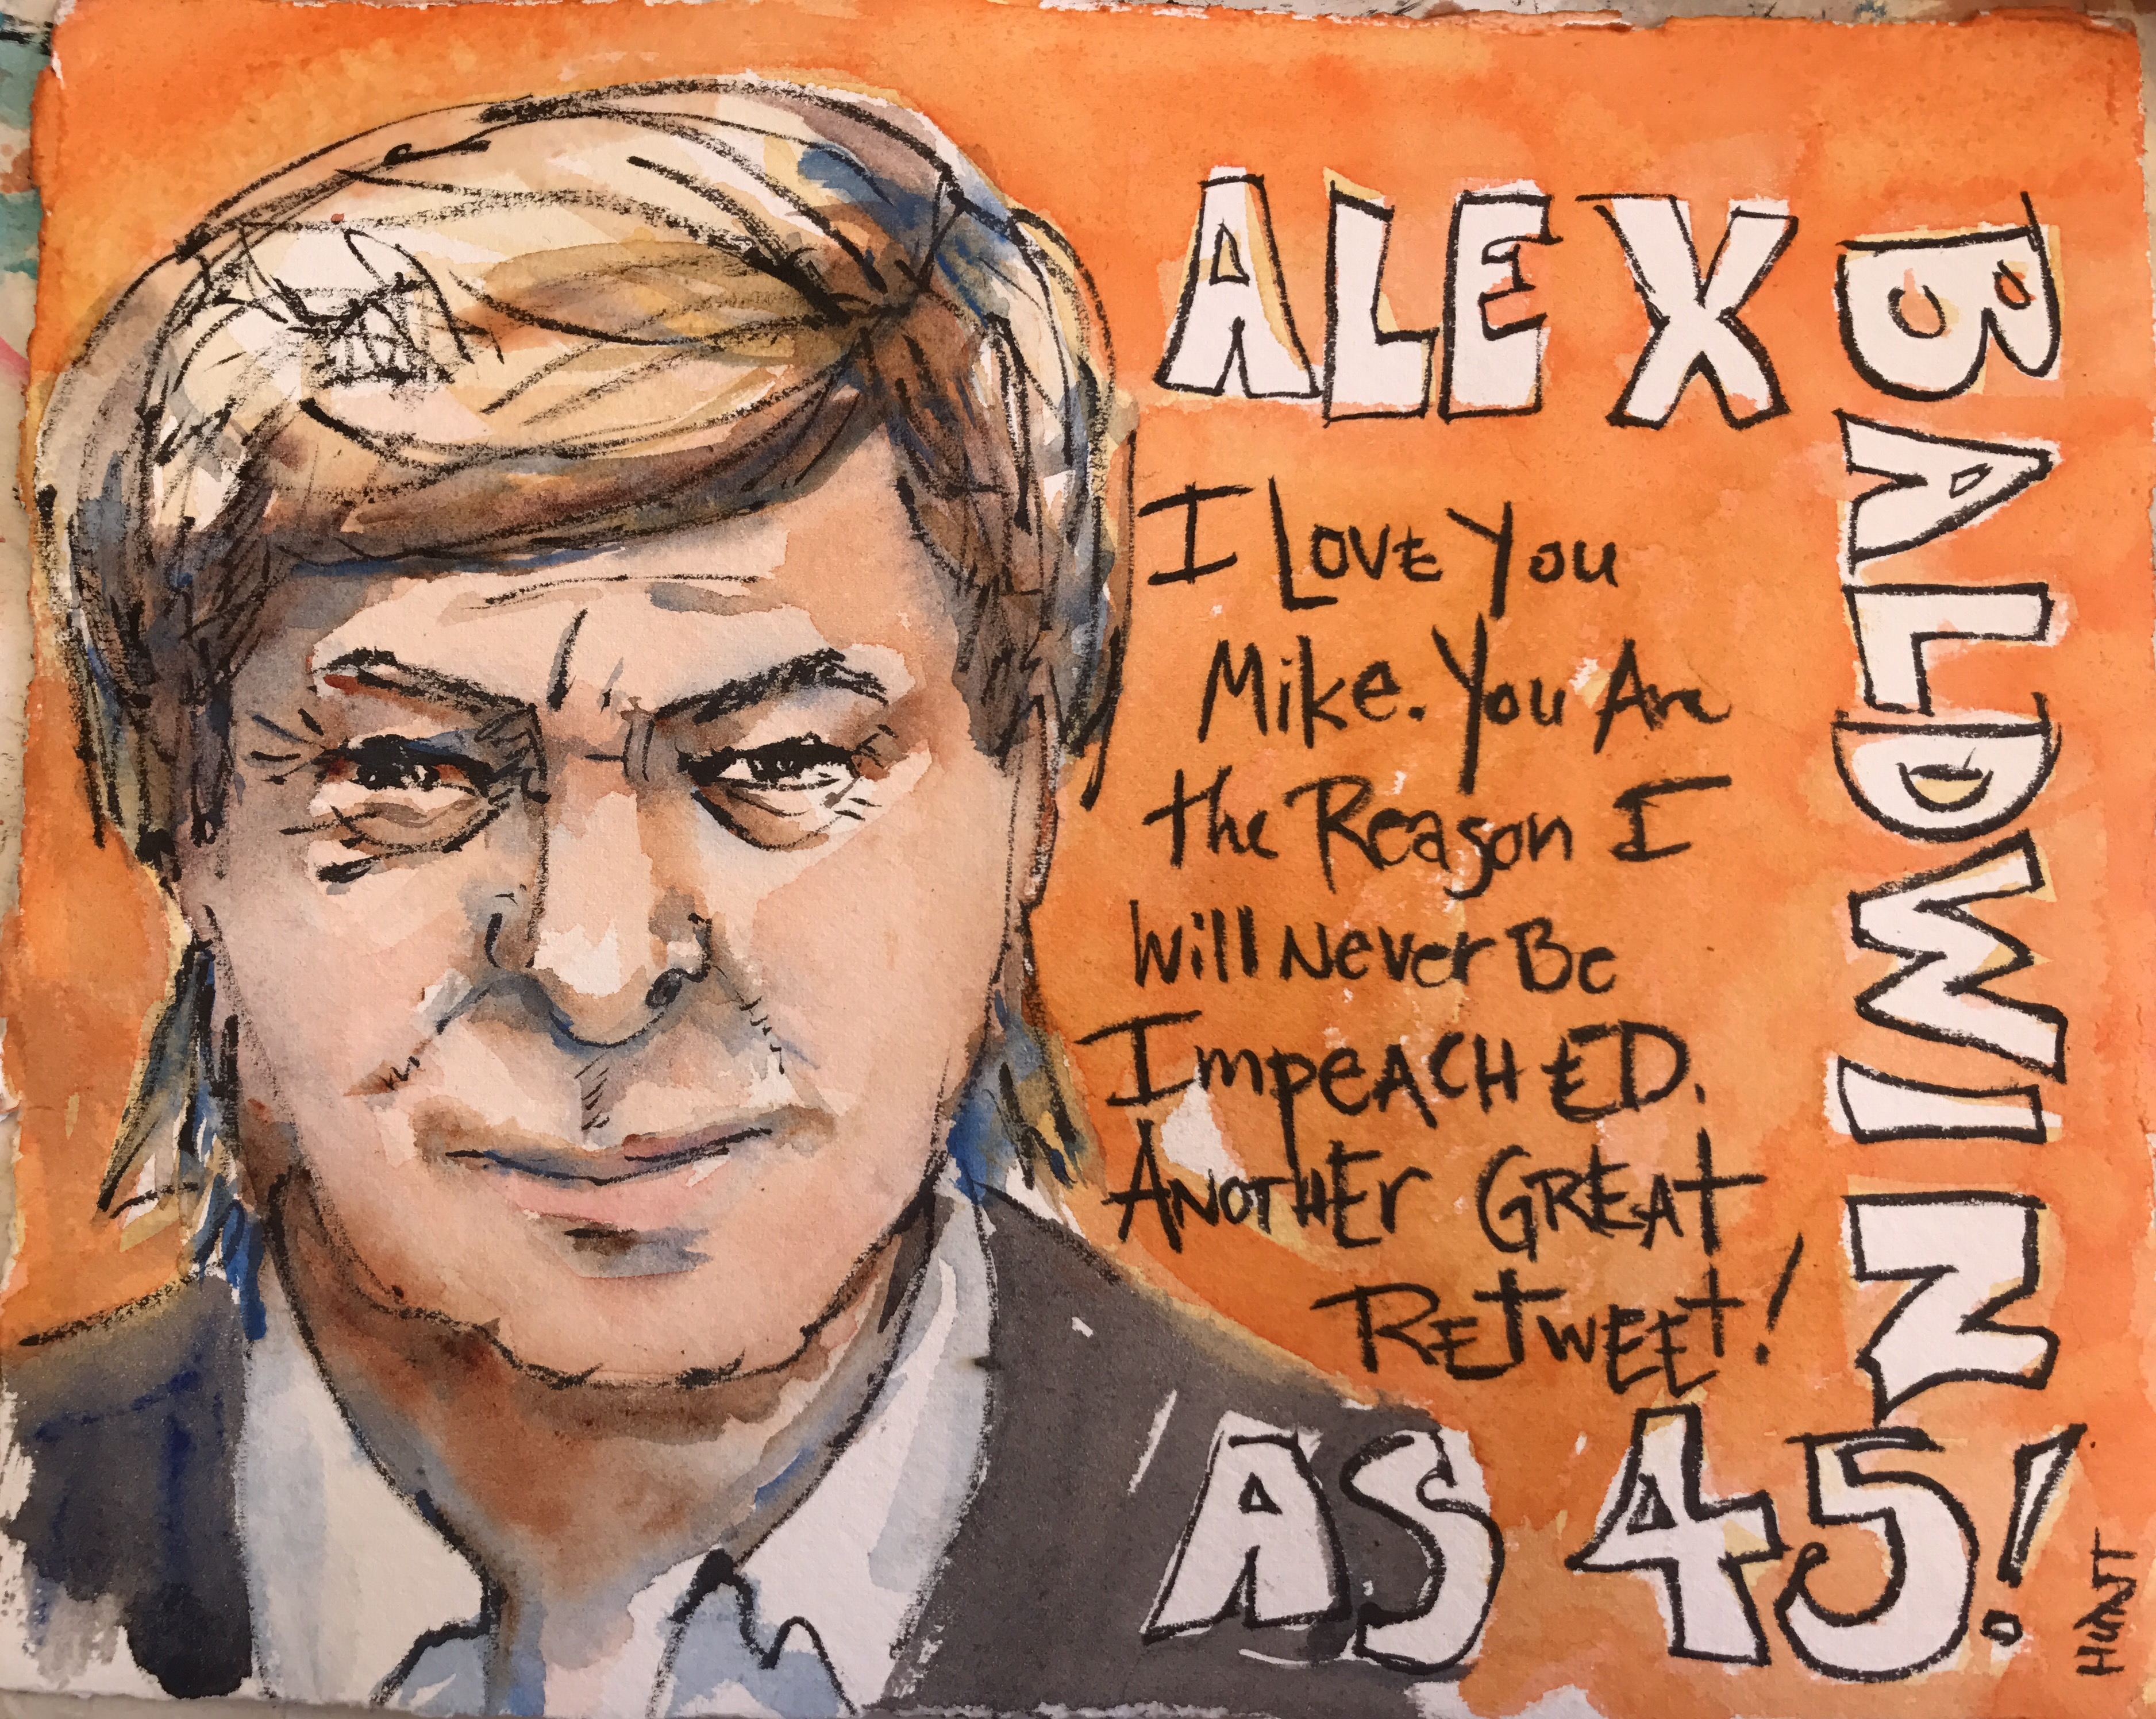 ALEX
BALDWIN
I Love You
Mike. You Are
the Reason I
Will Never Be
ImpeACHED.
ANOTHEr GREAt
REtWEEt!
AS 45!
HUNT